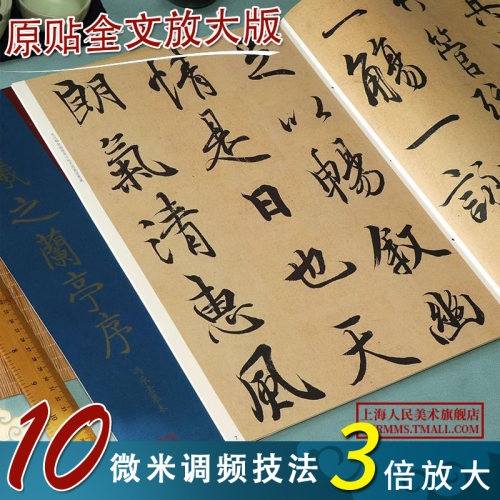 原贴全文放大版
管
一觴一詠
之以暢叙幽
情是日也天
朗氣清惠風
羲之蘭亭序
上海人民美术旗舰店
RMMS.TMALL.COM
10微米调频技法 3倍放大